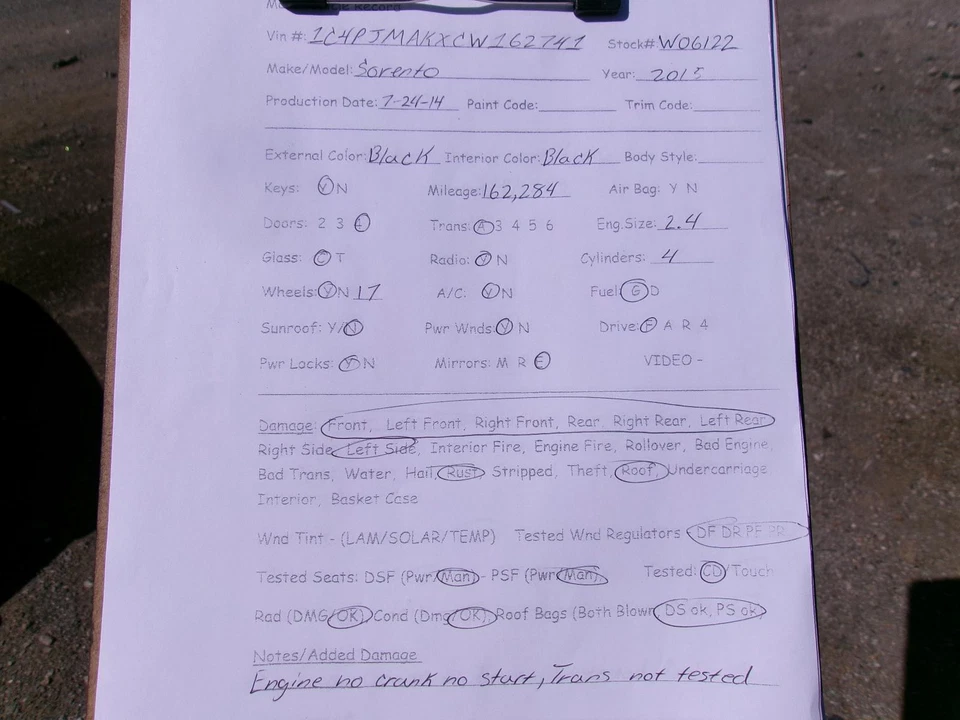 Record
Vin #: 1C4PJMAKXCW162741 Stock# W06122
Make/Model: Sorento Year: 2015
Production Date: 7-24-14 Paint Code: Trim Code:
External Color: Black Interior Color: Black Body Style:
Keys: Y N Mileage: 162,284 Air Bag: Y N
Doors: 2 3 4 Trans: A 3 4 5 6 Eng.Size: 2.4
Glass: C T Radio: Y N Cylinders: 4
Wheels: Y N 17 A/C: Y N Fuel: G D
Sunroof: Y/N Pwr Wnds: Y N Drive: F A R 4
Pwr Locks: Y N Mirrors: M R E VIDEO -
Damage: Front, Left Front, Right Front, Rear, Right Rear, Left Rear
Right Side, Left Side, Interior Fire, Engine Fire, Rollover, Bad Engine,
Bad Trans, Water, Hail, Rust, Stripped, Theft, Roof, Undercarriage
Interior, Basket Case
Wnd Tint - (LAM/SOLAR/TEMP) Tested Wnd Regulators DF DR PF RR
Tested Seats: DSF (Pwr/Man) - PSF (Pwr/Man), Tested: CD/Touch
Rad (DMG/OK), Cond (Dmg/OK), Roof Bags (Both Blown, DS ok, PS ok,
Notes/Added Damage
Engine no crank no start, Trans not tested